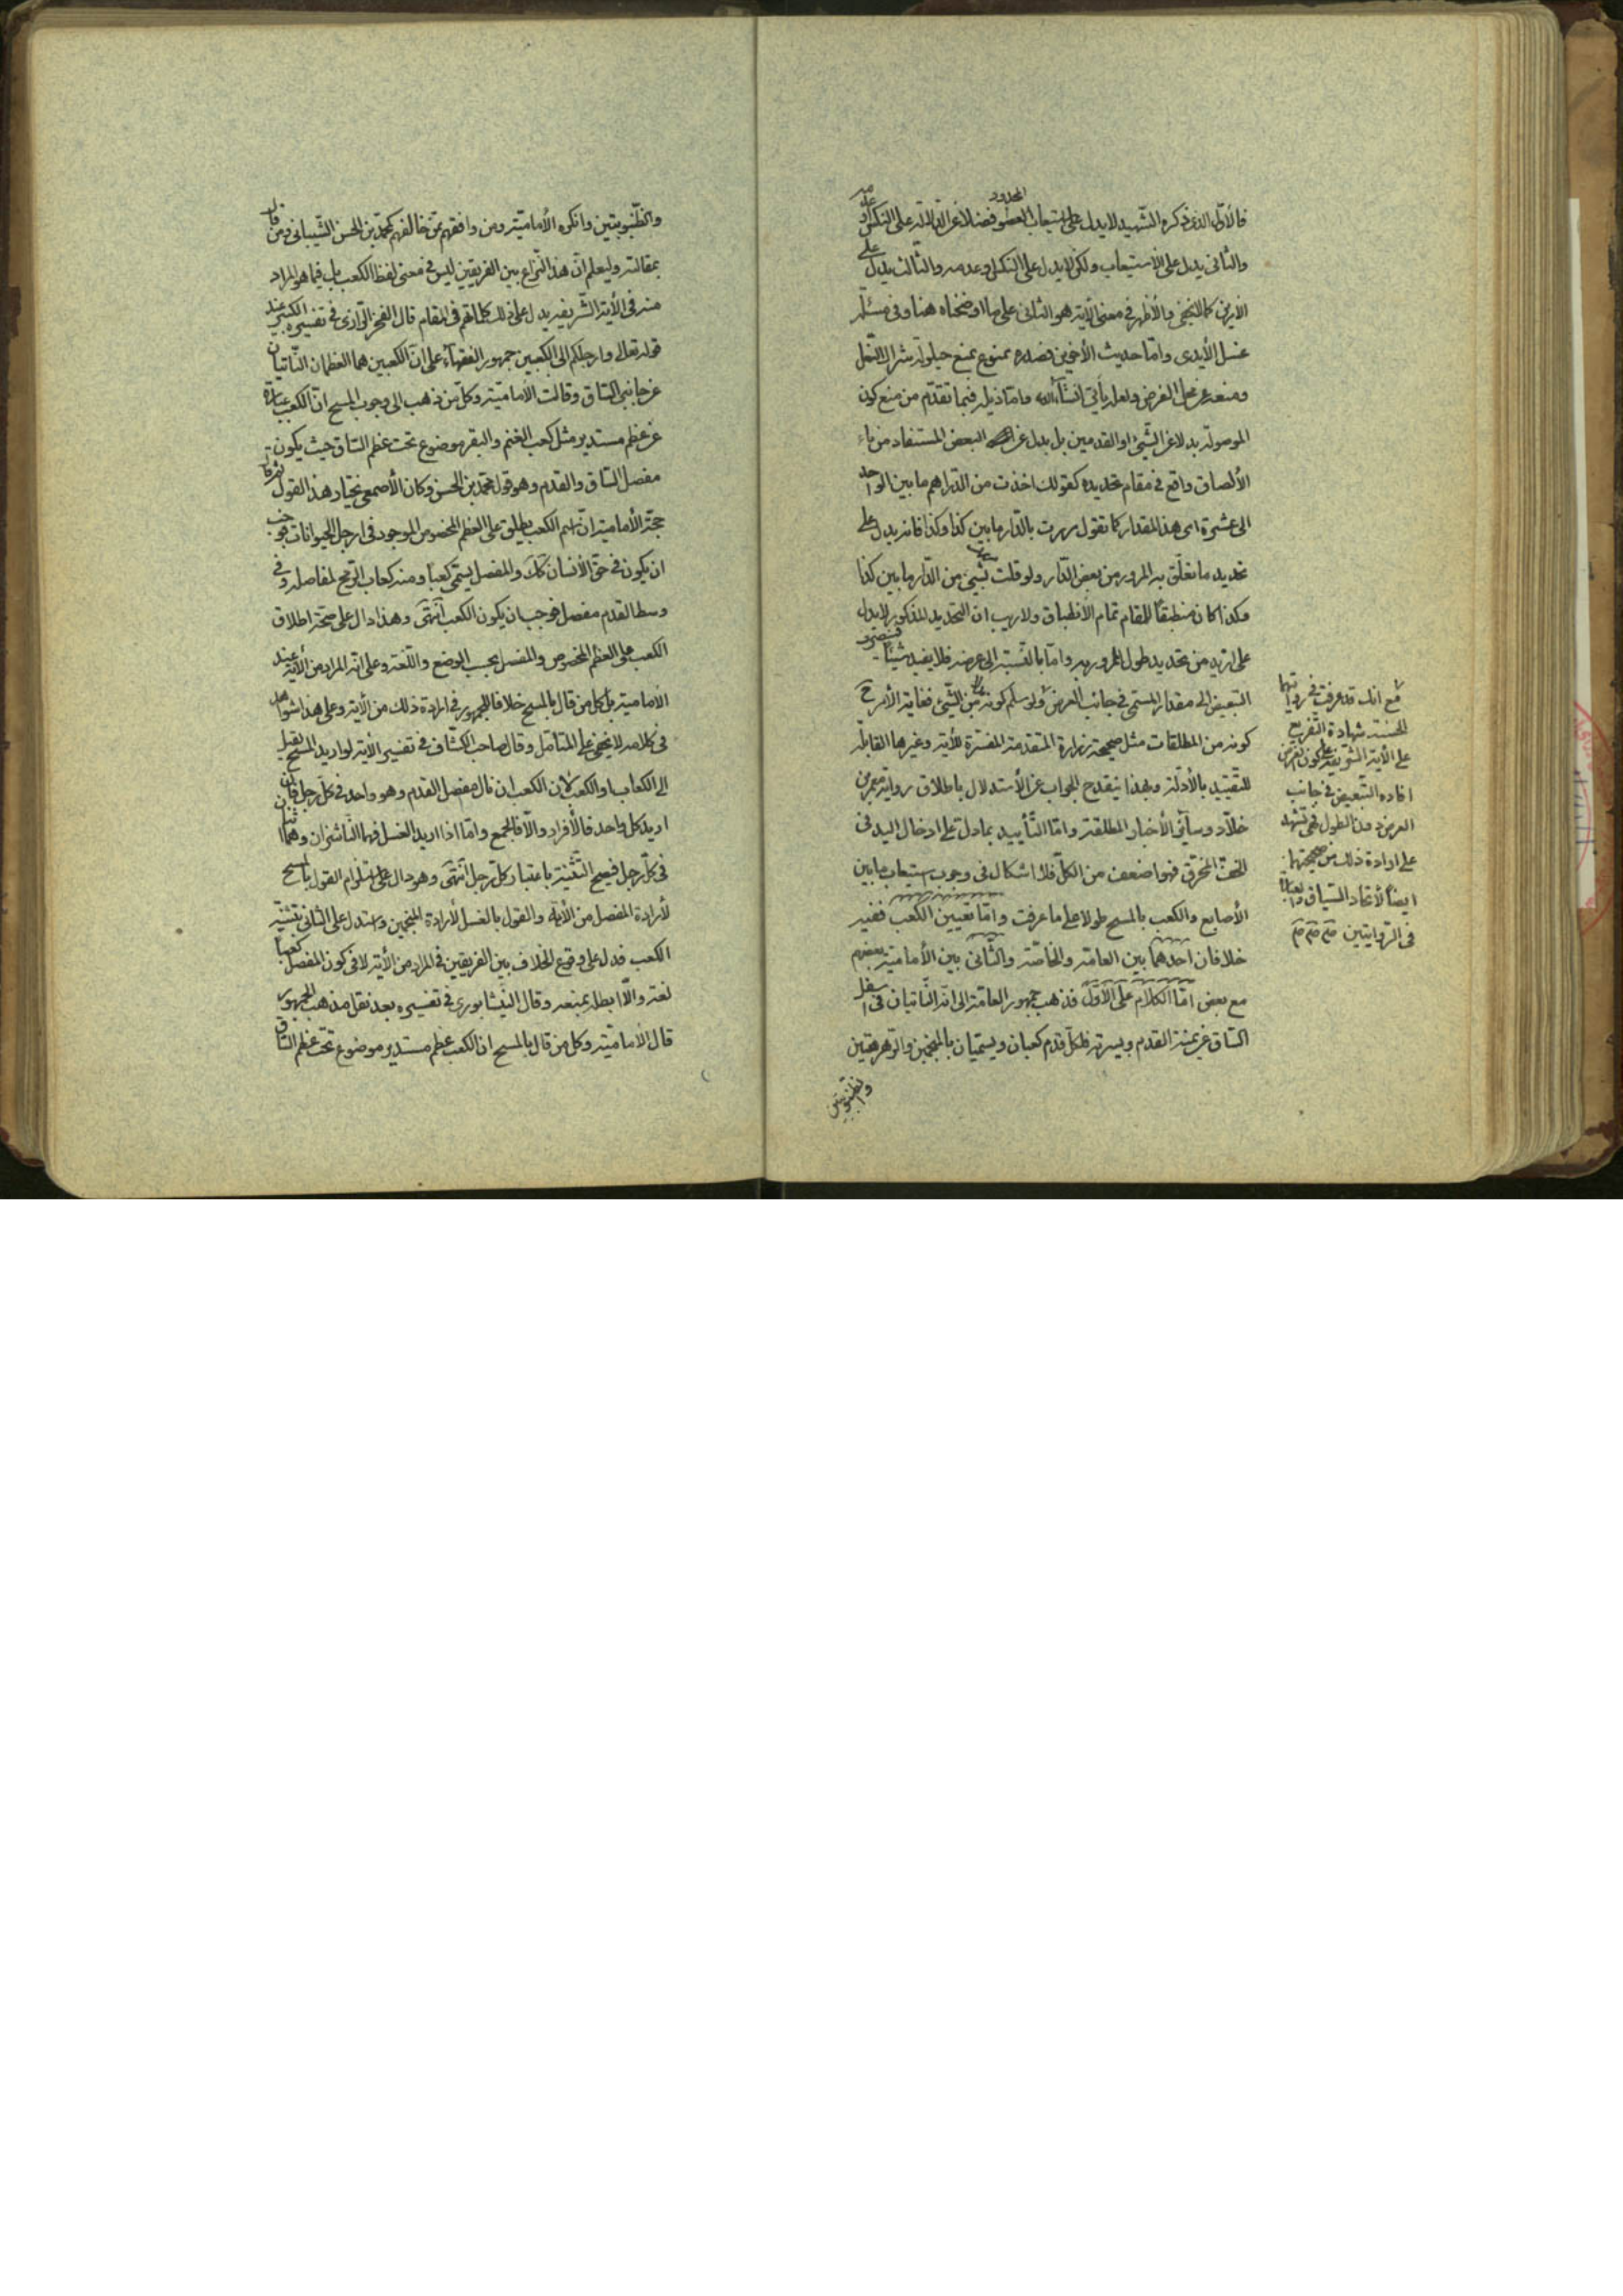 فالأول الذى ذكره الشهيد لا يدل على استيعاب العضو المحدود فضلا عن الدلالة على النكس وعدمه
والثانى يدل على الاستيعاب ولكن لا يدل على النكس وعدمه والثالث يدل على
الأمرين كما لا يخفى والأظهر فى معنى الآية هو الثانى على ما اوضحناه هنا وفى مسئلة
غسل الأيدى واما حديث الأخوين فصدره ممنوع بمنع حيلولة شراك النعل
ومنعه عن محل الفرض ولعله يأتى انشاء الله واما ذيله فبما تقدم من منع كون
الموصولة بدلا عن الشيئ او القدمين بل بدل عن البعض المستفاد من باء
الألصاق واقع فى مقام تحديده كقولك اخذت من الدراهم ما بين الواحد
الى عشرة اى هذا المقدار كما تقول مررت بالدار ما بين كذا وكذا فانه يدل على
تحديد ما تعلق به المرور من بعض الدار ولو قلت بشيئ من الدار ما بين كذا
وكذا كان منطبقا للمقام تمام الانطباق ولا ريب ان التحديد المذكور لا يدل
على ازيد من تحديد طول الممرور به واما بالنسبة الى عرضه فلا يفيد شيئا
التبعيض الى مقدار المسمى فى جانب العرض ولو سلم كونه من الشيئ فغاية الأمر ح
كونه من المطلقات مثل صحيحة زرارة المتقدمة المفسرة للآية وغيرها القابلة
للتقييد بالأدلة وبهذا ينقدح الجواب عن الأستدلال باطلاق رواية معمر بن
خلاد وسائر الأخبار المطلقة واما التأييد بما دل على ادخال اليد فى
الخف المخرق فهو اضعف من الكل فلا اشكال فى وجوب استيعاب ما بين
الأصابع والكعب بالمسح طولا على ما عرفت واما تعيين الكعب ففيه
خلافان احدهما بين العامة والخاصة والثانى بين الأمامية بعضهم
مع بعض اما الكلام على الأول فذهب جمهور العامة الى انه الناتيان فى اسفل
الساق عن يمنة القدم ويسرته فلكل قدم كعبان ويسميان بالمنجمين والرهرهتين
والظنبوبتين
مع انك قد عرفت فى روايتها
الحسنة شهادة التفريع
على الآية الشريفة على كون الغرض
افادة التبعيض فى جانب
العرض دون الطول فهى تشهد
على ارادة ذلك من صحيحتها
ايضا لأتحاد السياق
فى الروايتين منه منه منه
والظنبوبتين وانكره الأمامية ومن وافقهم ممن خالفهم كمحمد بن الحسن الشيبانى ومن قال
بمقالته وليعلم ان هذا النزاع بين الفريقين ليس فى معنى لفظ الكعب بل فيما هو المراد
منه فى الأية الشريفة يدل على ذلك كلماتهم فى المقام قال الفخر الرازى فى تفسيره الكبير عند
قوله تعالى وارجلكم الى الكعبين جمهور الفقهاء على ان الكعبين هما العظمان الناتيان
عن جانبى الساق وقالت الأمامية وكل من ذهب الى وجوب المسح ان الكعب عبارة
عن عظم مستدير مثل كعب الغنم والبقر موضوع تحت عظم الساق حيث يكون
مفصل الساق والقدم وهو قول محمد بن الحسن وكان الأصمعى يختار هذا القول ثم قال
حجة الأمامية ان اسم الكعب يطلق على العظم المخصوص الموجود فى ارجل الحيوانات فوجب
ان يكون فى حق الأنسان كك والمفصل يسمى كعبا ومنه كعاب الرمح لمفاصله وفى
وسط القدم مفصل فوجب ان يكون الكعب انتهى وهذا دال على صحة اطلاق
الكعب على العظم المخصوص والمفصل بحسب الوضع واللغة وعلى انه المراد من الأية عند
الأمامية بل كل من قال بالمسح خلافا للجمهور فى ارادة ذلك من الأية وعلى هذا شواهد
فى كلامه لا يخفى على المتامل وقال صاحب الكشاف فى تفسير الأية لو اريد المسح لقيل
الى الكعاب او الكعب لان الكعب ان قال مفصل القدم وهو واحد فى كل رجل فان
اريد كل واحد فالأفراد والا فالجمع واما اذا اريد الغسل فهما الناشزان وهما اثنان
فى كل رجل فيصح التثنية باعتبار كل رجل انتهى وهو دال على استلزام القول بالمسح
لأرادة المفصل من الأية والقول بالغسل لأرادة المنجمين واستدل على الثانى بتثنية
الكعب فدل على وقوع الخلاف بين الفريقين فى المراد من الأية لا فى كون المفصل كعبا
لغة والا ابطله بمنعه وقال النيشابورى فى تفسيره بعد نقل مذهب الجمهور
قال الأمامية وكل من قال بالمسح ان الكعب عظم مستدير موضوع تحت عظم الساق